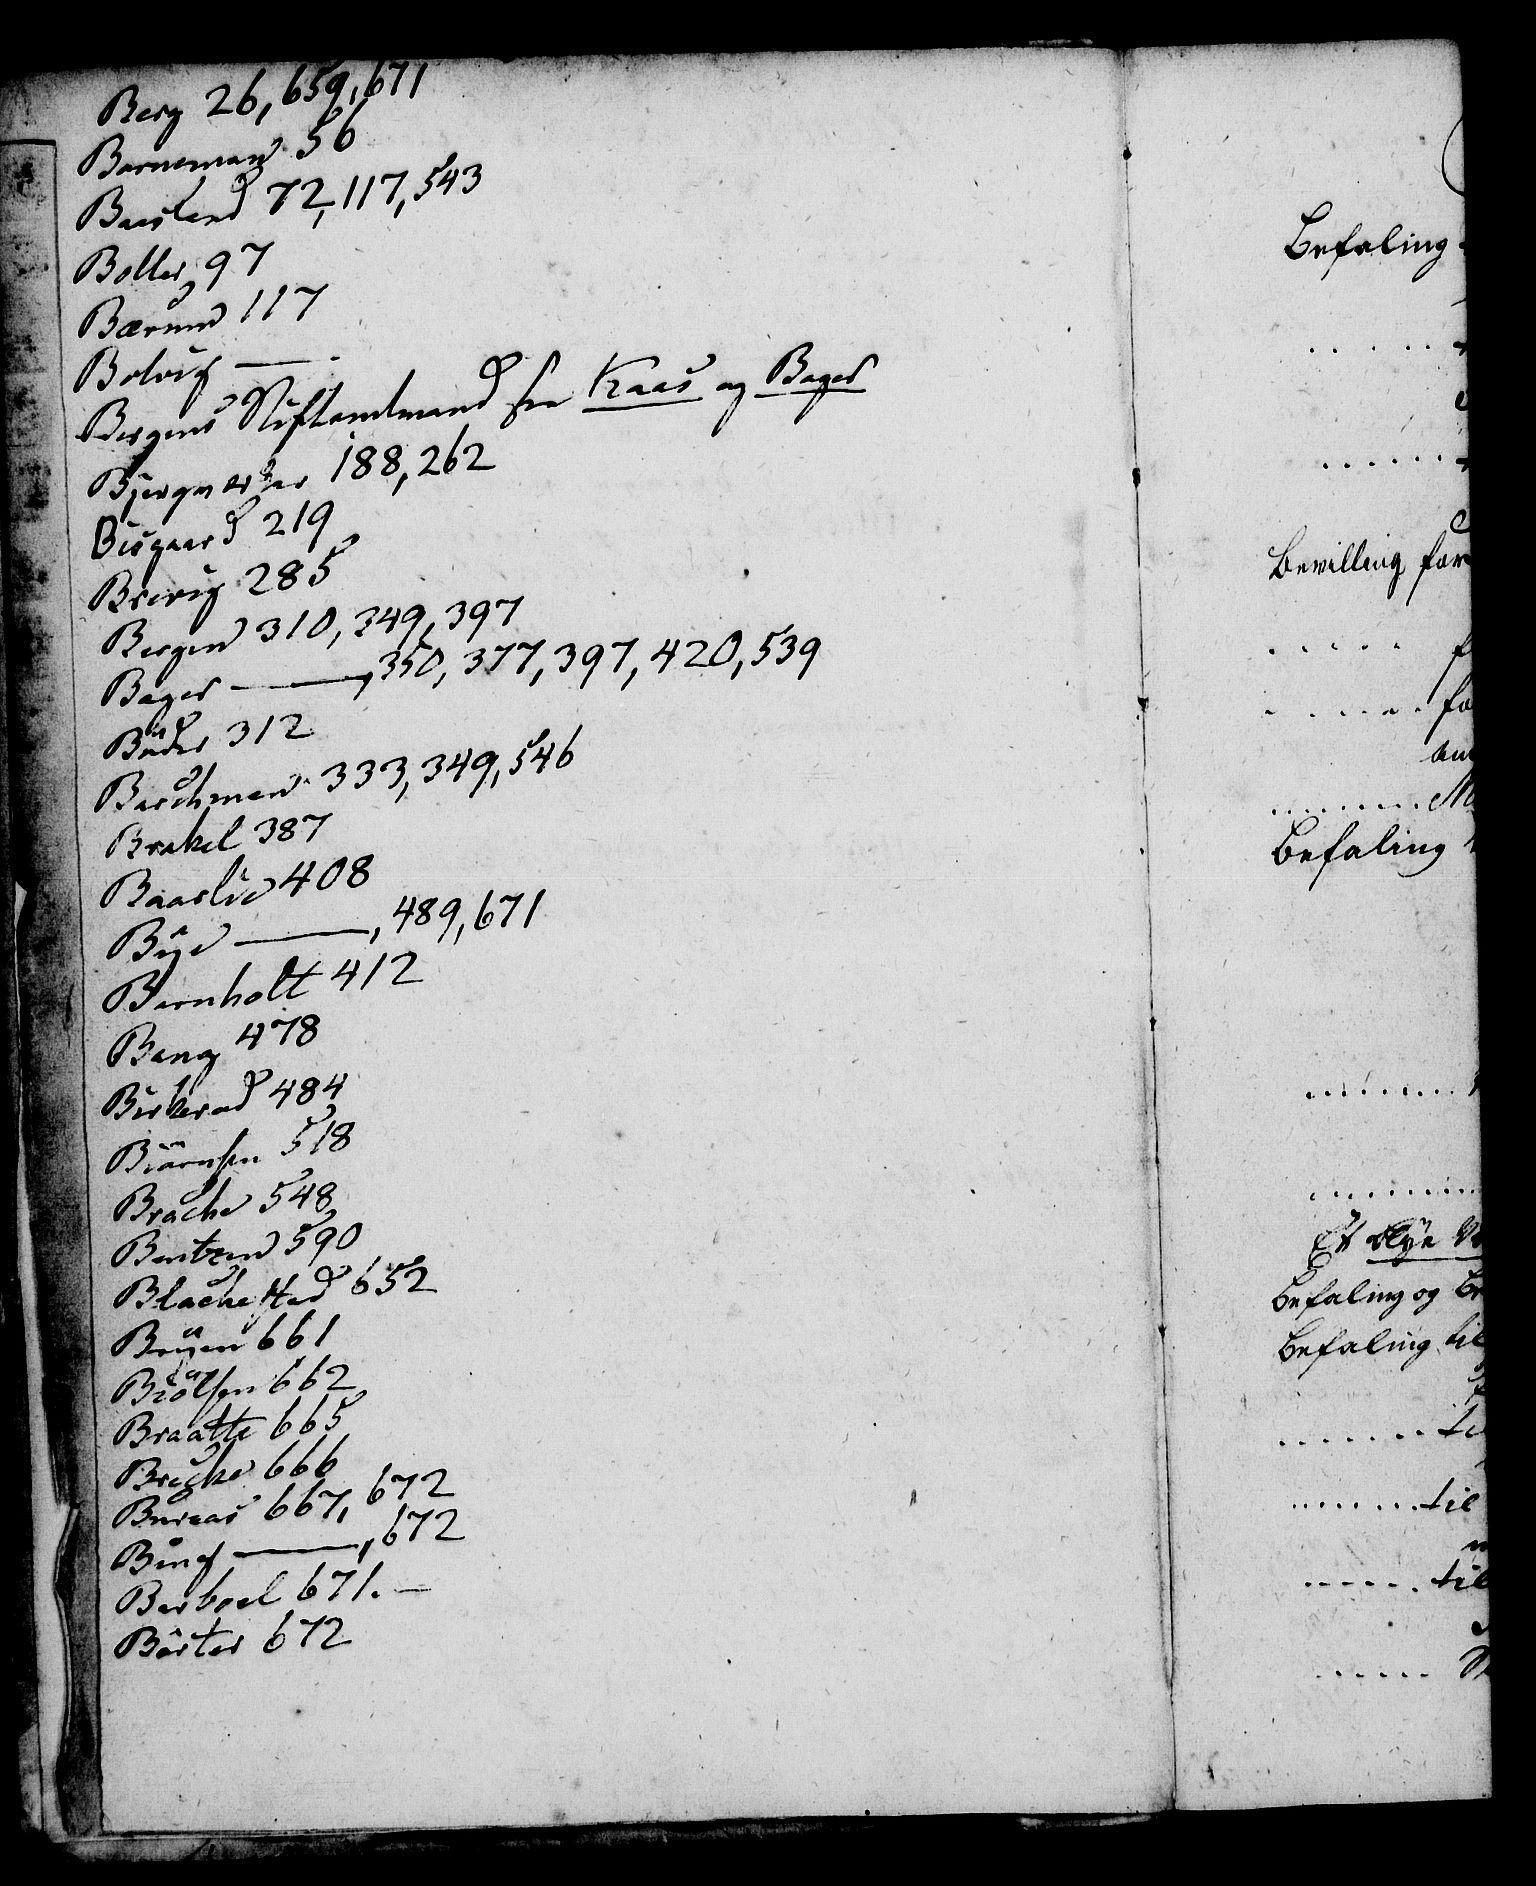 Berg 26, 659, 671
Borneman 56
Baasland 72, 117, 543
Botler 97
Bærum 117
Bolvig —
Bergens Stiftamtmand see Kaas og Bager
Bjergverker 188, 262
Bisgaard 219
Brevig 285
Bergen 310, 349, 397
Bager —, 350, 377, 397, 420, 539
312
Barchman 333, 349, 546
Brakel 387
Baarlie 408
Bÿe —, 489, 671
Barnholt 412
Bang 478
Birkerod 484
Biörnsen 518
Brache 548
Bentzen 590
Blachestad 652
Brÿen 661
Biölsen 662
Braatte 665
Bricke 666
Bureas 667, 672
Bing —, 672
Barboel 671. —
Börter 672
Befaling
Bevilling for
f
fo
an
M
Befaling
Et Nye
Befaling og Be
Befaling til
ti
til
til